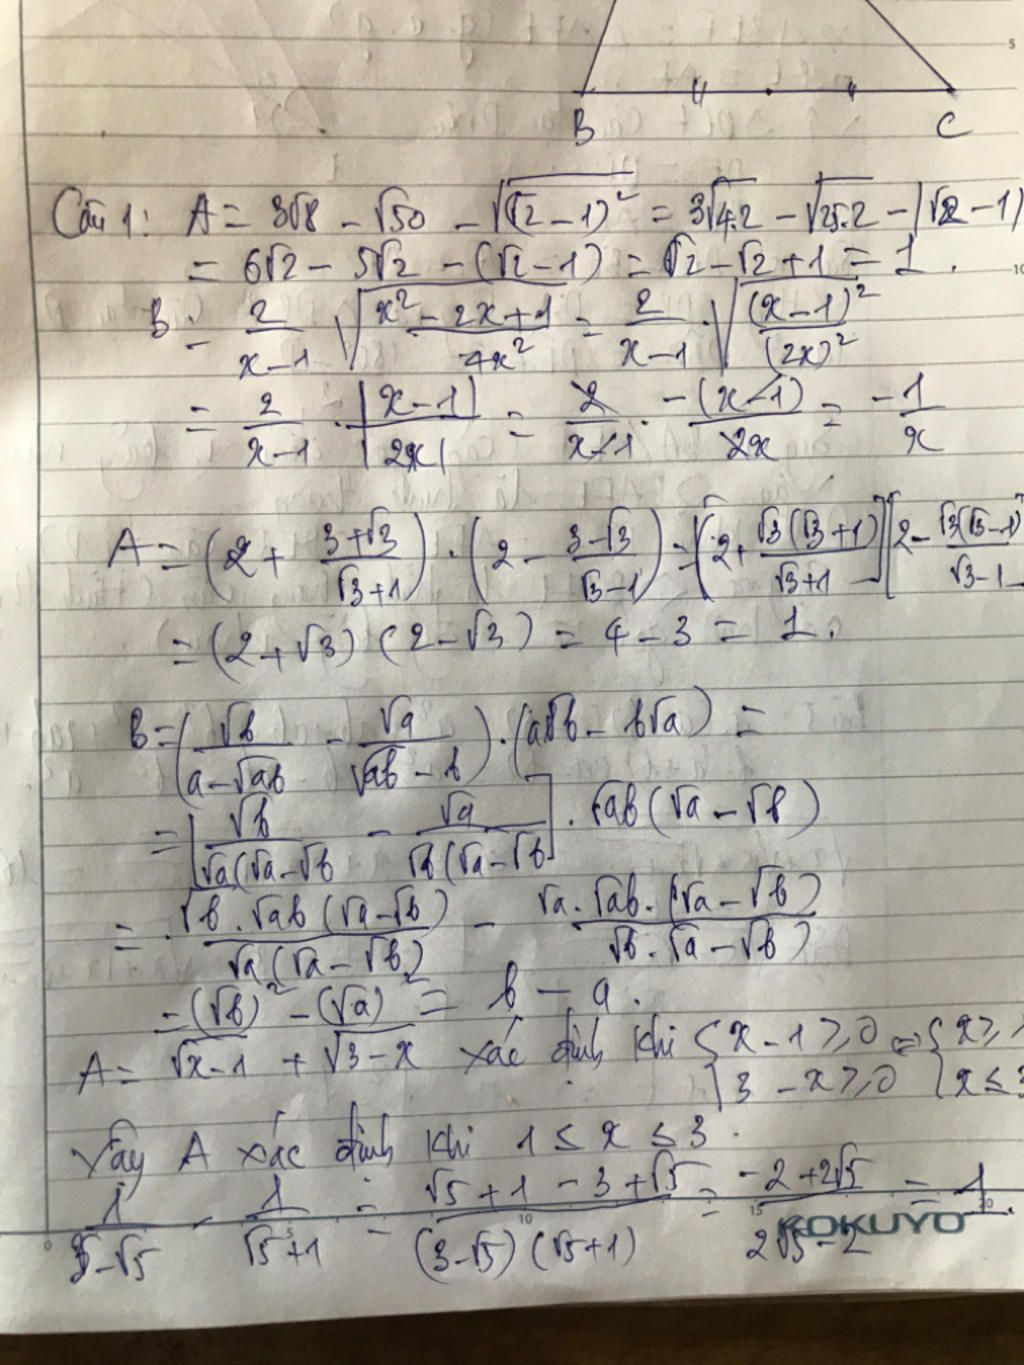 B C
Câu 1: A = 3√8 - √50 - √(√2 - 1)² = 3√4.2 - √25.2 - |√2 - 1|
= 6√2 - 5√2 - (√2 - 1) = √2 - √2 + 1 = 1.
B = 2/(x-1) √((x² - 2x + 1)/4x²) = 2/(x-1) . √((x-1)²/(2x)²)
= 2/(x-1) . |x-1|/|2x| = 2/(x-1) . -(x-1)/2x = -1/x
A = (2 + (3+√3)/(√3+1)) . (2 - (3-√3)/(√3-1)) = [2 + √3(√3+1)/(√3+1)] [2 - √3(√3-1)/(√3-1)
= (2+√3) (2-√3) = 4 - 3 = 1.
B = (√b/(a-√ab) - √a/(√ab - b)) . (a√b - b√a) =
= [√b/(√a(√a-√b) - √a/(√b(√a-√b)] . √ab (√a - √b)
= √b . √ab (√a-√b)/(√a(√a-√b)) - √a . √ab . (√a - √b)/(√b . √a - √b)
= (√b)² - (√a)² = b - a.
A = √x-1 + √3-x xác định khi { x - 1 ≥ 0 ⇔ { x ≥ 1
{ 3 - x ≥ 0 { x ≤ 3
Vậy A xác định khi 1 ≤ x ≤ 3.
1/(3-√5) - 1/(√5+1) = (√5+1 - 3+√5)/((3-√5)(√5+1)) = (-2+2√5)/(2√5-2) = 1.
KOKUYO
0 5 10 15 20
5
10